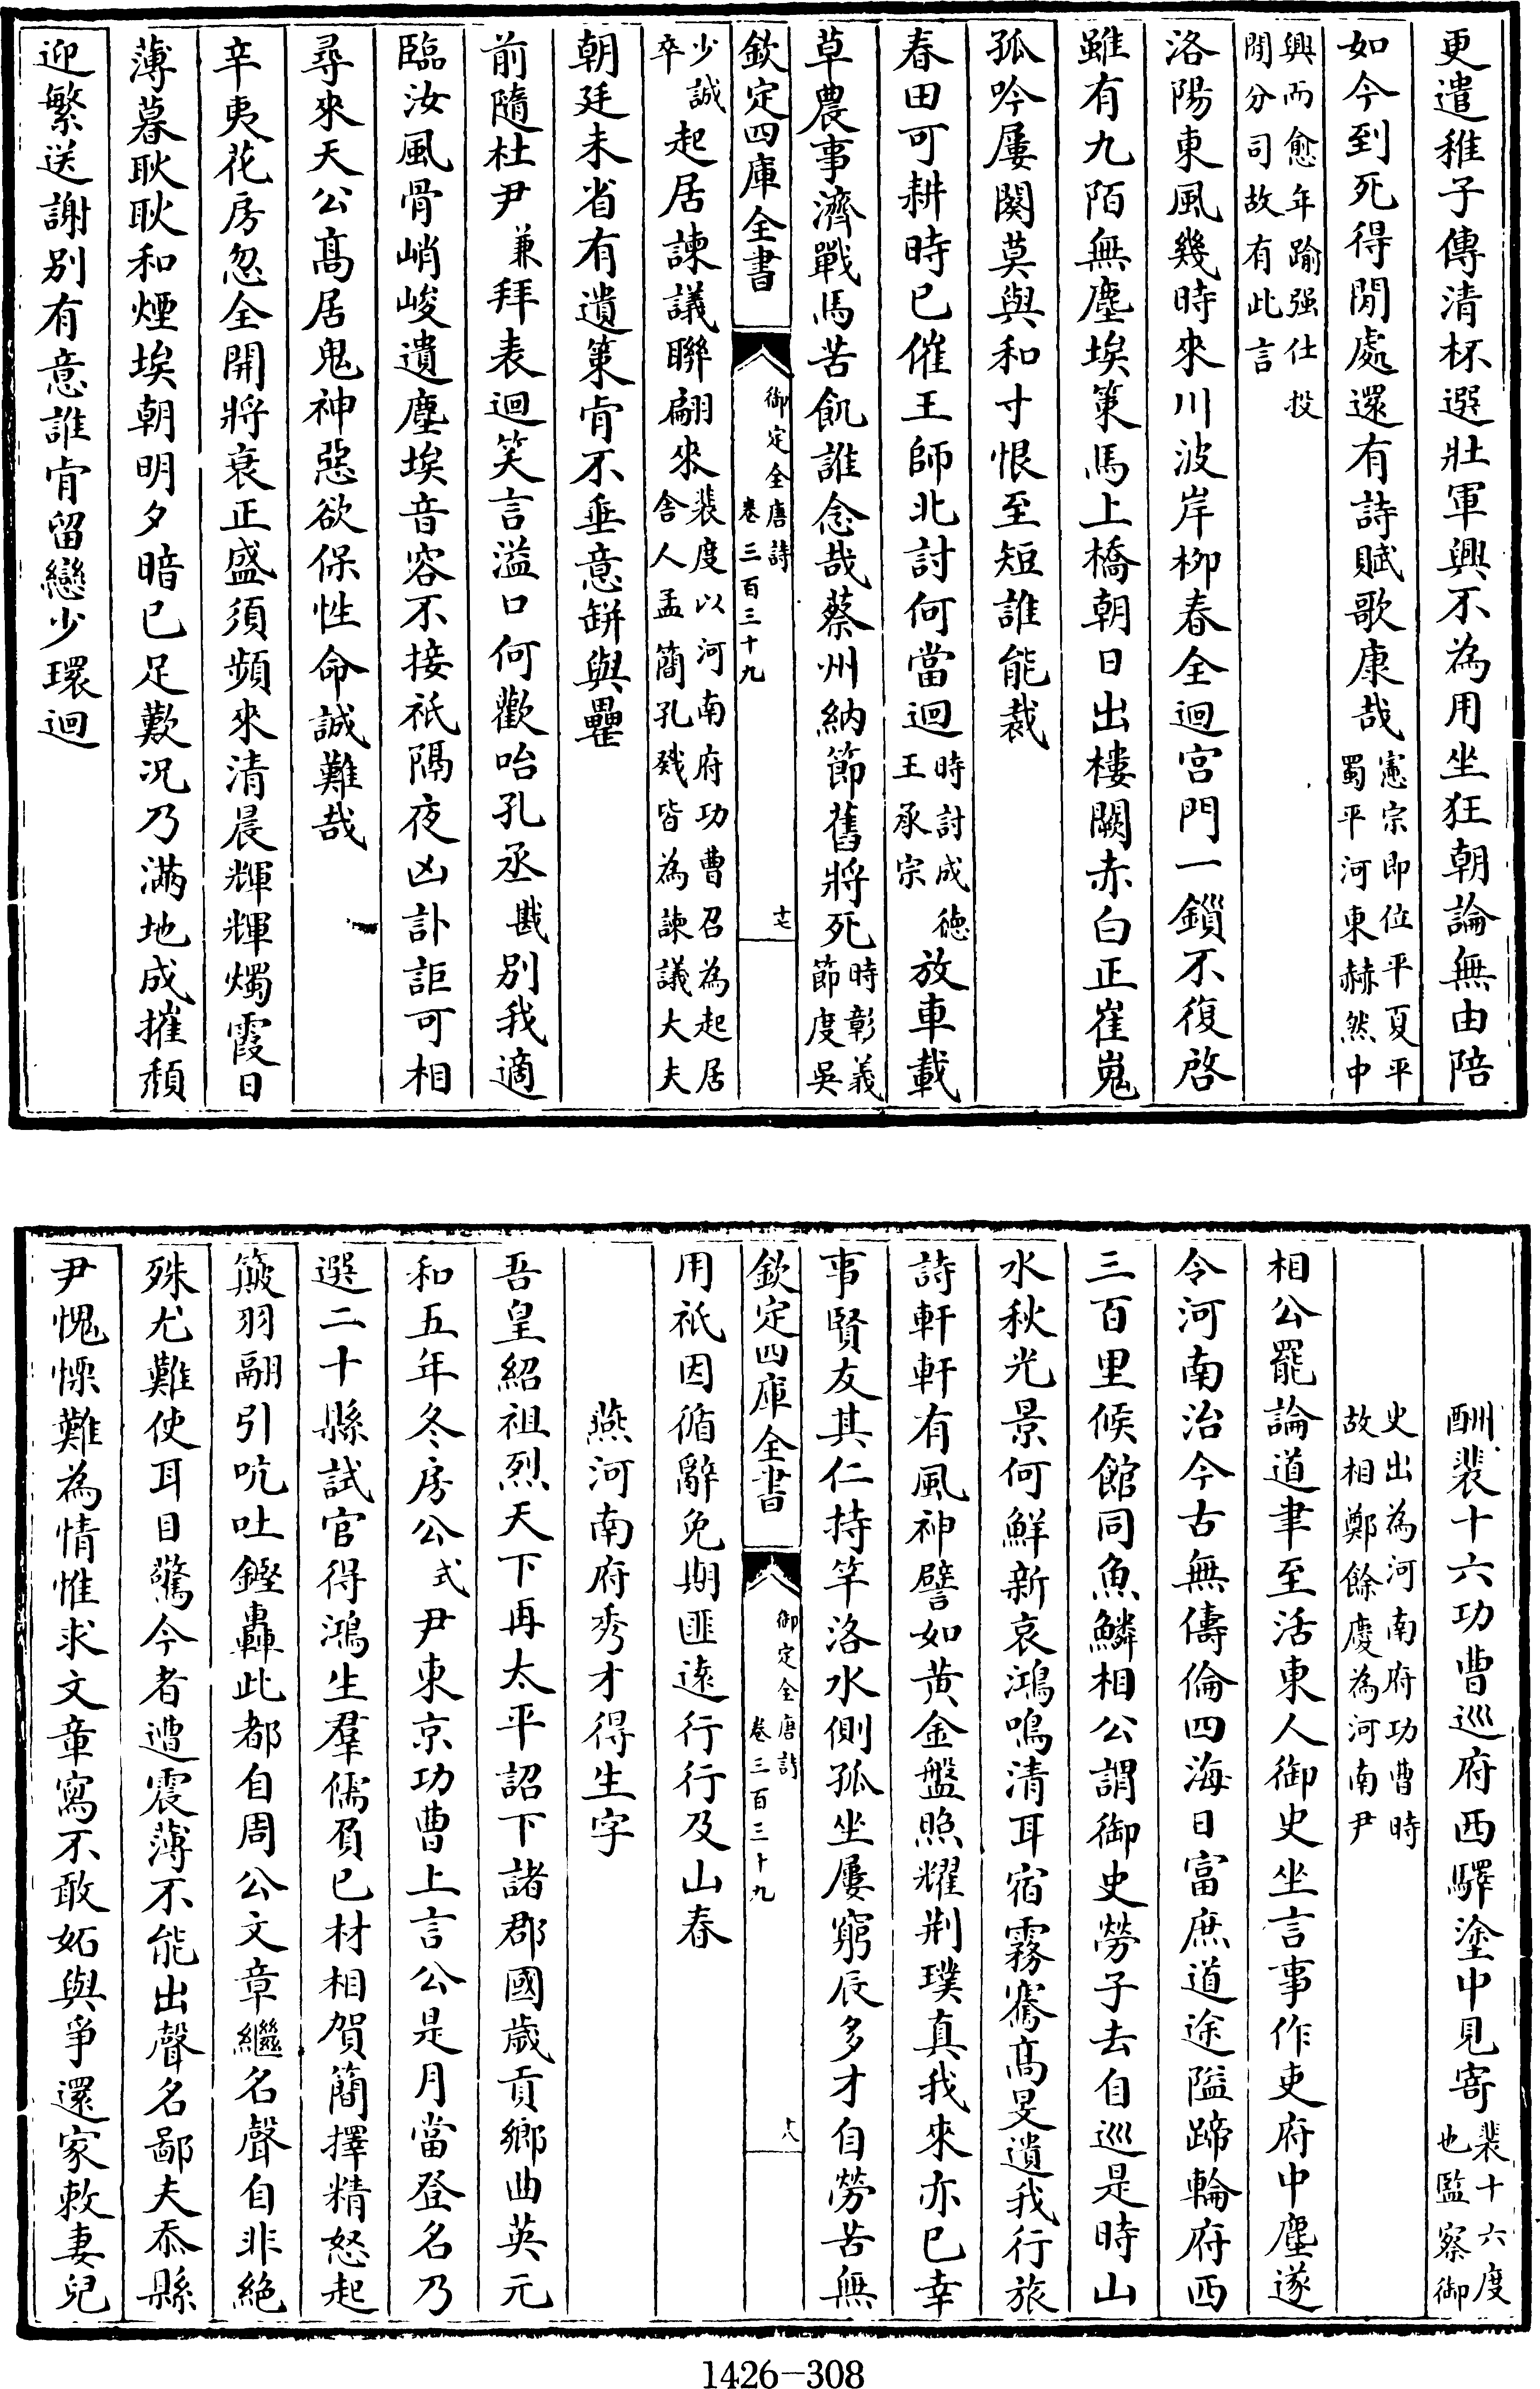 更遣稚子傳清杯選壯軍興不為用坐狂朝論無由陪
如今到死得閒處還有詩賦歌康哉憲宗即位平夏平蜀平河東赫然中
興而愈年踰强仕投閒分司故有此言
洛陽東風幾時來川波岸柳春全迴宮門一鎻不復啓
雖有九陌無塵埃策馬上橋朝日出樓闕赤白正崔嵬
孤吟屢闋莫與和寸恨至短誰能裁
春田可耕時已催王師北討何當迴時討成德王承宗放車載
草農事濟戰馬苦飢誰念哉蔡州納節舊將死時彰義節度吳
欽定四庫全書
御定全唐詩
卷三百三十九
十七
少誠卒起居諫議聯翩來裴度以河南府功曹召為起居舍人孟簡孔戣皆為諫議大夫
朝廷未省有遺策肯不垂意缾與罍
前隨杜尹兼拜表迴笑言溢口何歡咍孔丞戡别我適
臨汝風骨峭峻遺塵埃音容不接祇隔夜凶訃詎可相
尋來天公髙居鬼神惡欲保性命誠難哉
辛夷花房忽全開將衰正盛須頻來清晨輝輝燭霞日
薄暮耿耿和煙埃朝明夕暗已足歎况乃滿地成摧頽
迎繁送謝别有意誰肯留戀少環迴
酬裴十六功曹巡府西驛塗中見寄裴十六度也監察御
史出為河南府功曹時故相鄭餘慶為河南尹
相公罷論道聿至活東人御史坐言事作吏府中塵遂
令河南治今古無儔倫四海日富庶道途隘蹄輪府西
三百里候館同魚鱗相公謂御史勞子去自巡是時山
水秋光景何鮮新哀鴻鳴清耳宿霧褰髙旻遺我行旅
詩軒軒有風神譬如黃金盤照耀荆璞真我來亦已幸
事賢友其仁持竿洛水側孤坐屢窮辰多才自勞苦無
欽定四庫全書
御定全唐詩
卷三百三十九
十八
用祇因循辭免期匪遠行行及山春
燕河南府秀才得生字
吾皇紹祖烈天下再太平詔下諸郡國歲貢鄉曲英元
和五年冬房公式尹東京功曹上言公是月當登名乃
選二十縣試官得鴻生羣儒負已材相賀簡擇精怒起
簸羽翮引吭吐鏗轟此都自周公文章繼名聲自非絶
殊尤難使耳目驚今者遭震薄不能出聲名鄙夫忝縣
尹愧慄難為情惟求文章寫不敢妬與爭還家敕妻兒
1426-308